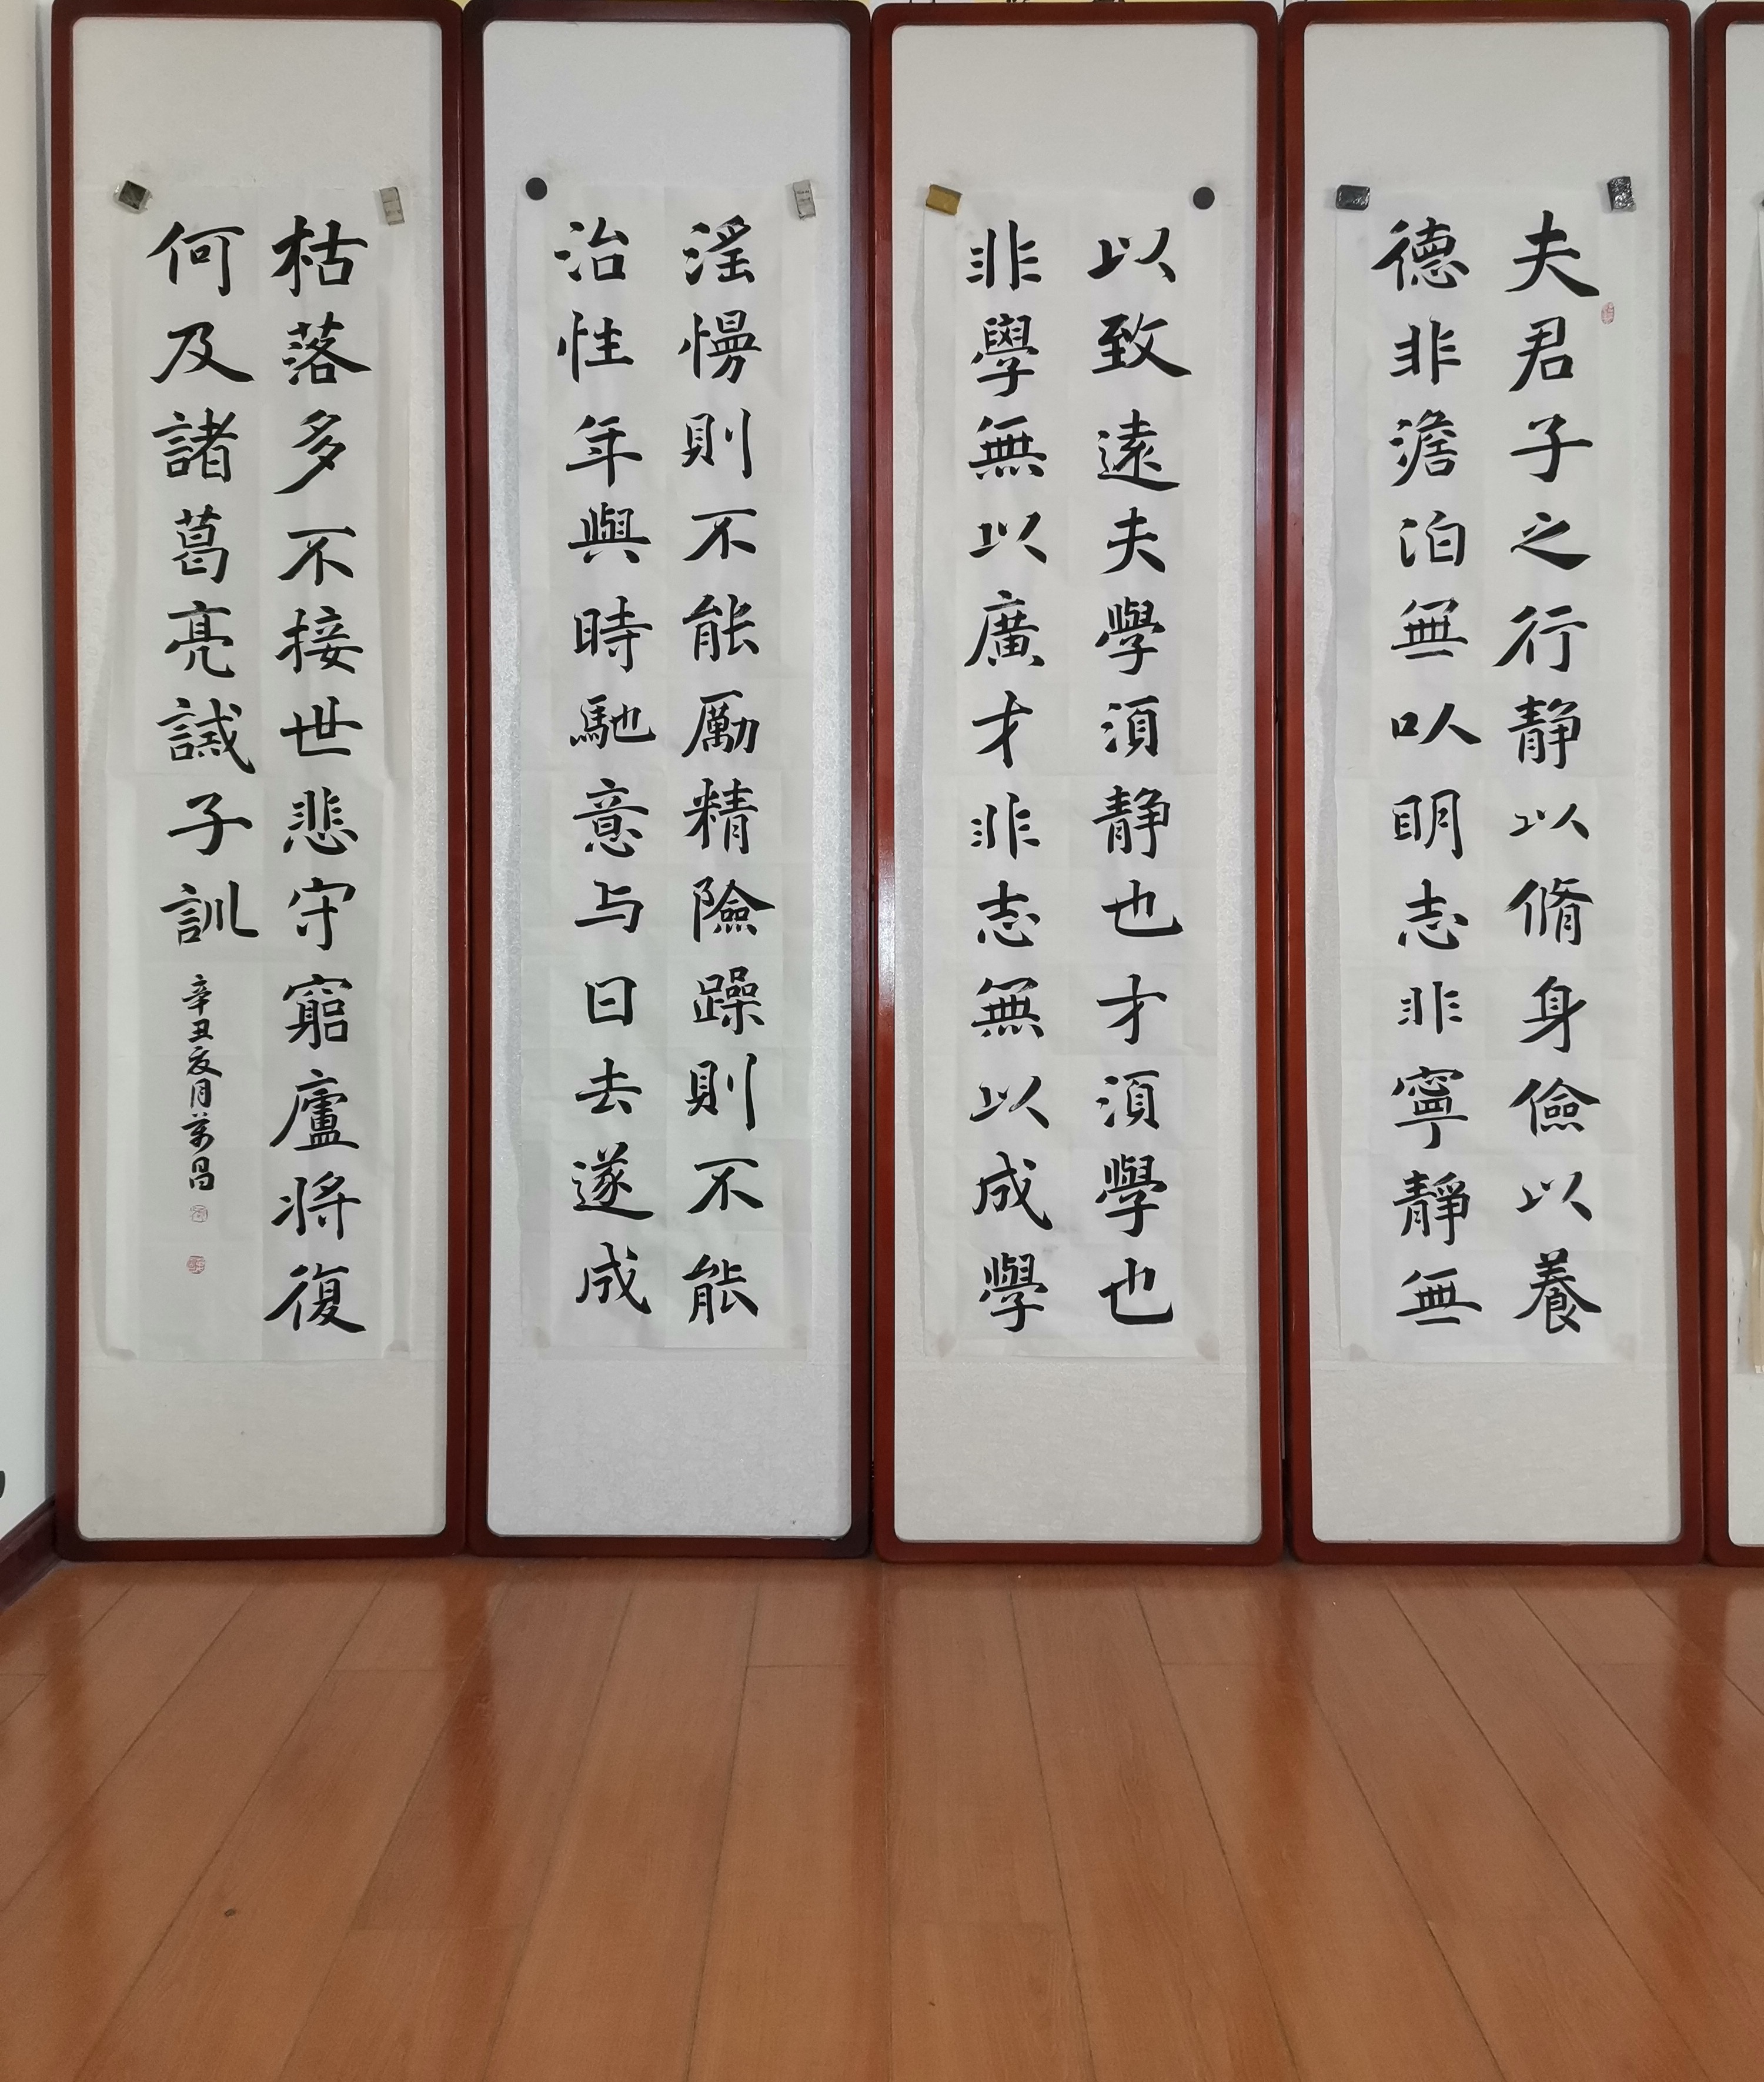 夫君子之行静以脩身儉以養
德非澹泊無以明志非寧靜無
以致遠夫學須静也才須學也
非學無以廣才非志無以成學
淫慢則不能厲精險躁則不能
治性年與時馳意与日去遂成
枯落多不接世悲守窮廬將復
何及諸葛亮誡子訓
辛丑夏月萬昌